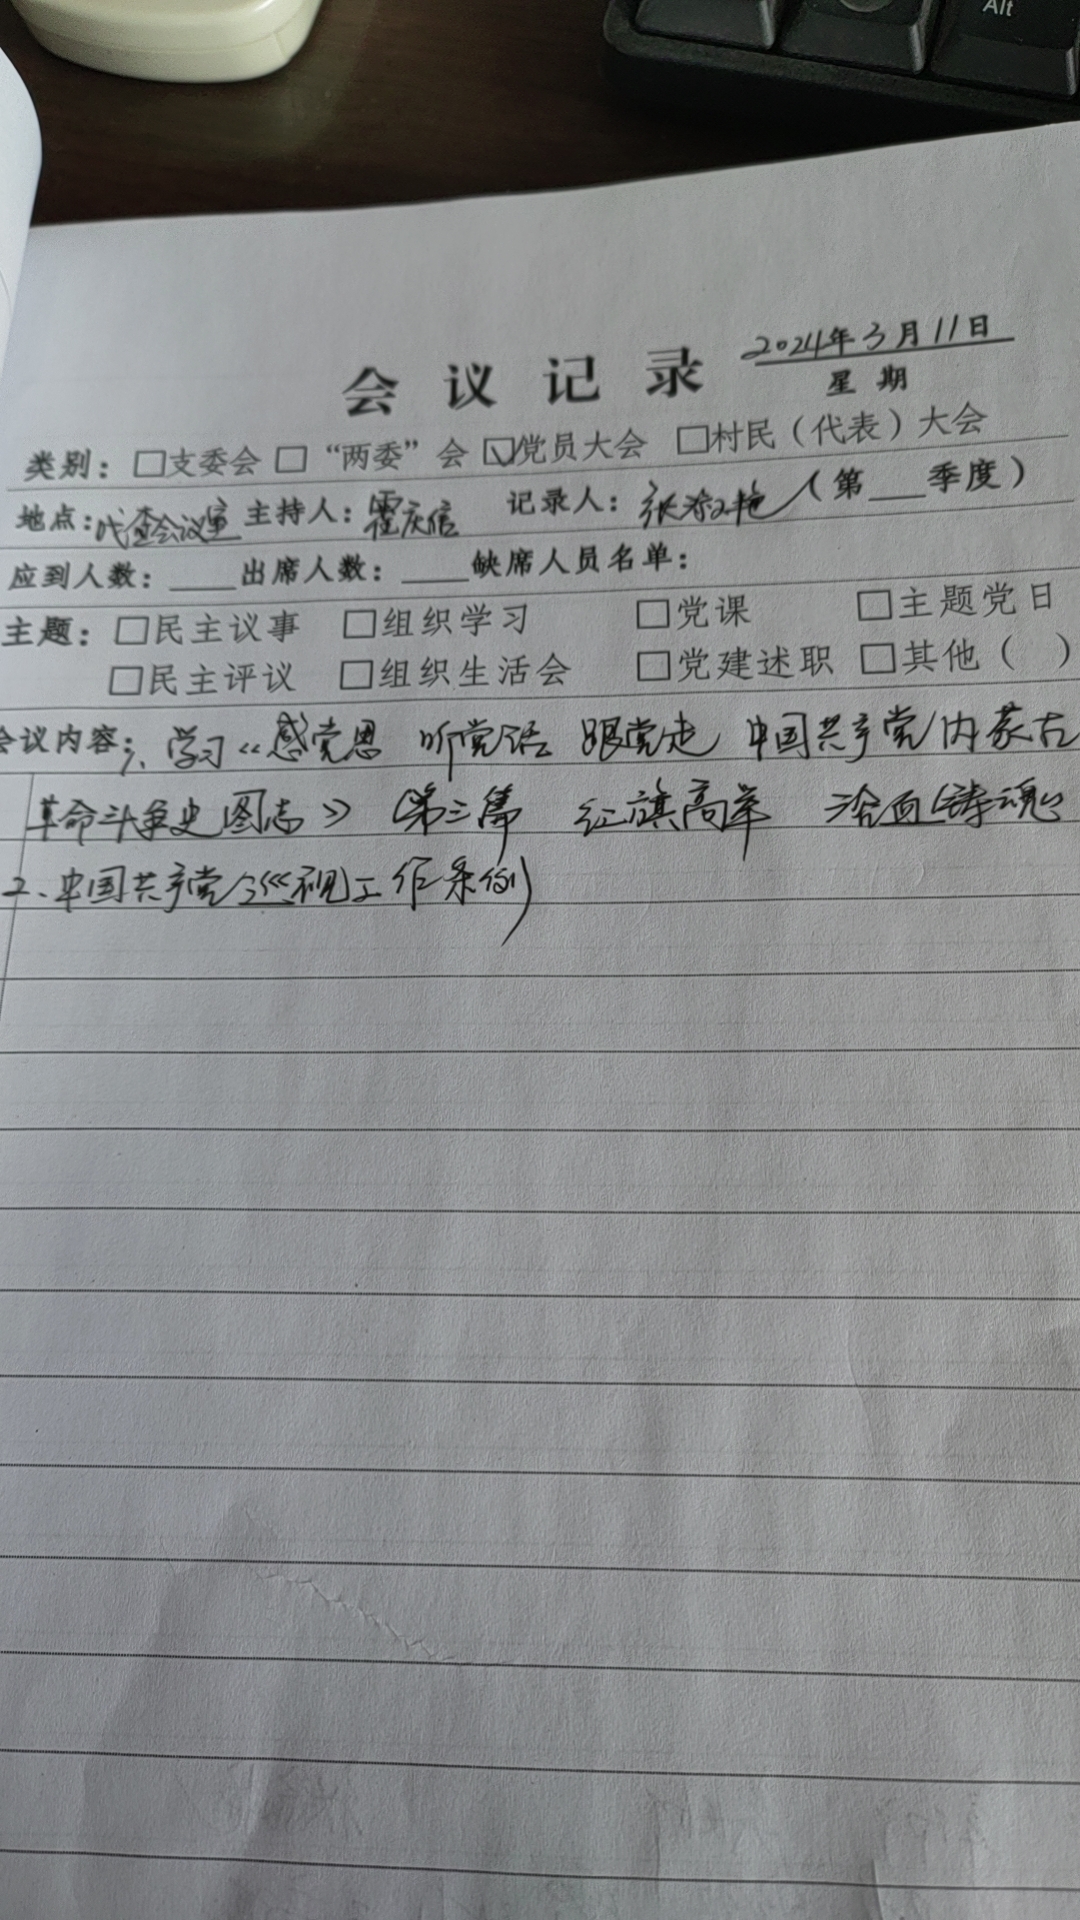 Alt
会议记录 2024年3月11日
星期
类别：□支委会 □“两委”会 ☑党员大会 □村民（代表）大会
地点：会议室 主持人：霍庆信 记录人：张 艳（第___季度）
应到人数：____出席人数：____缺席人员名单：
主题：□民主议事 □组织学习 □党课 □主题党日
□民主评议 □组织生活会 □党建述职 □其他（ ）
会议内容：1、学习《感党恩 听党话 跟党走 中国共产党内蒙古
革命斗争史图志》（第三篇 红旗高举 浴血铸魂）
2、中国共产党巡视工作条例